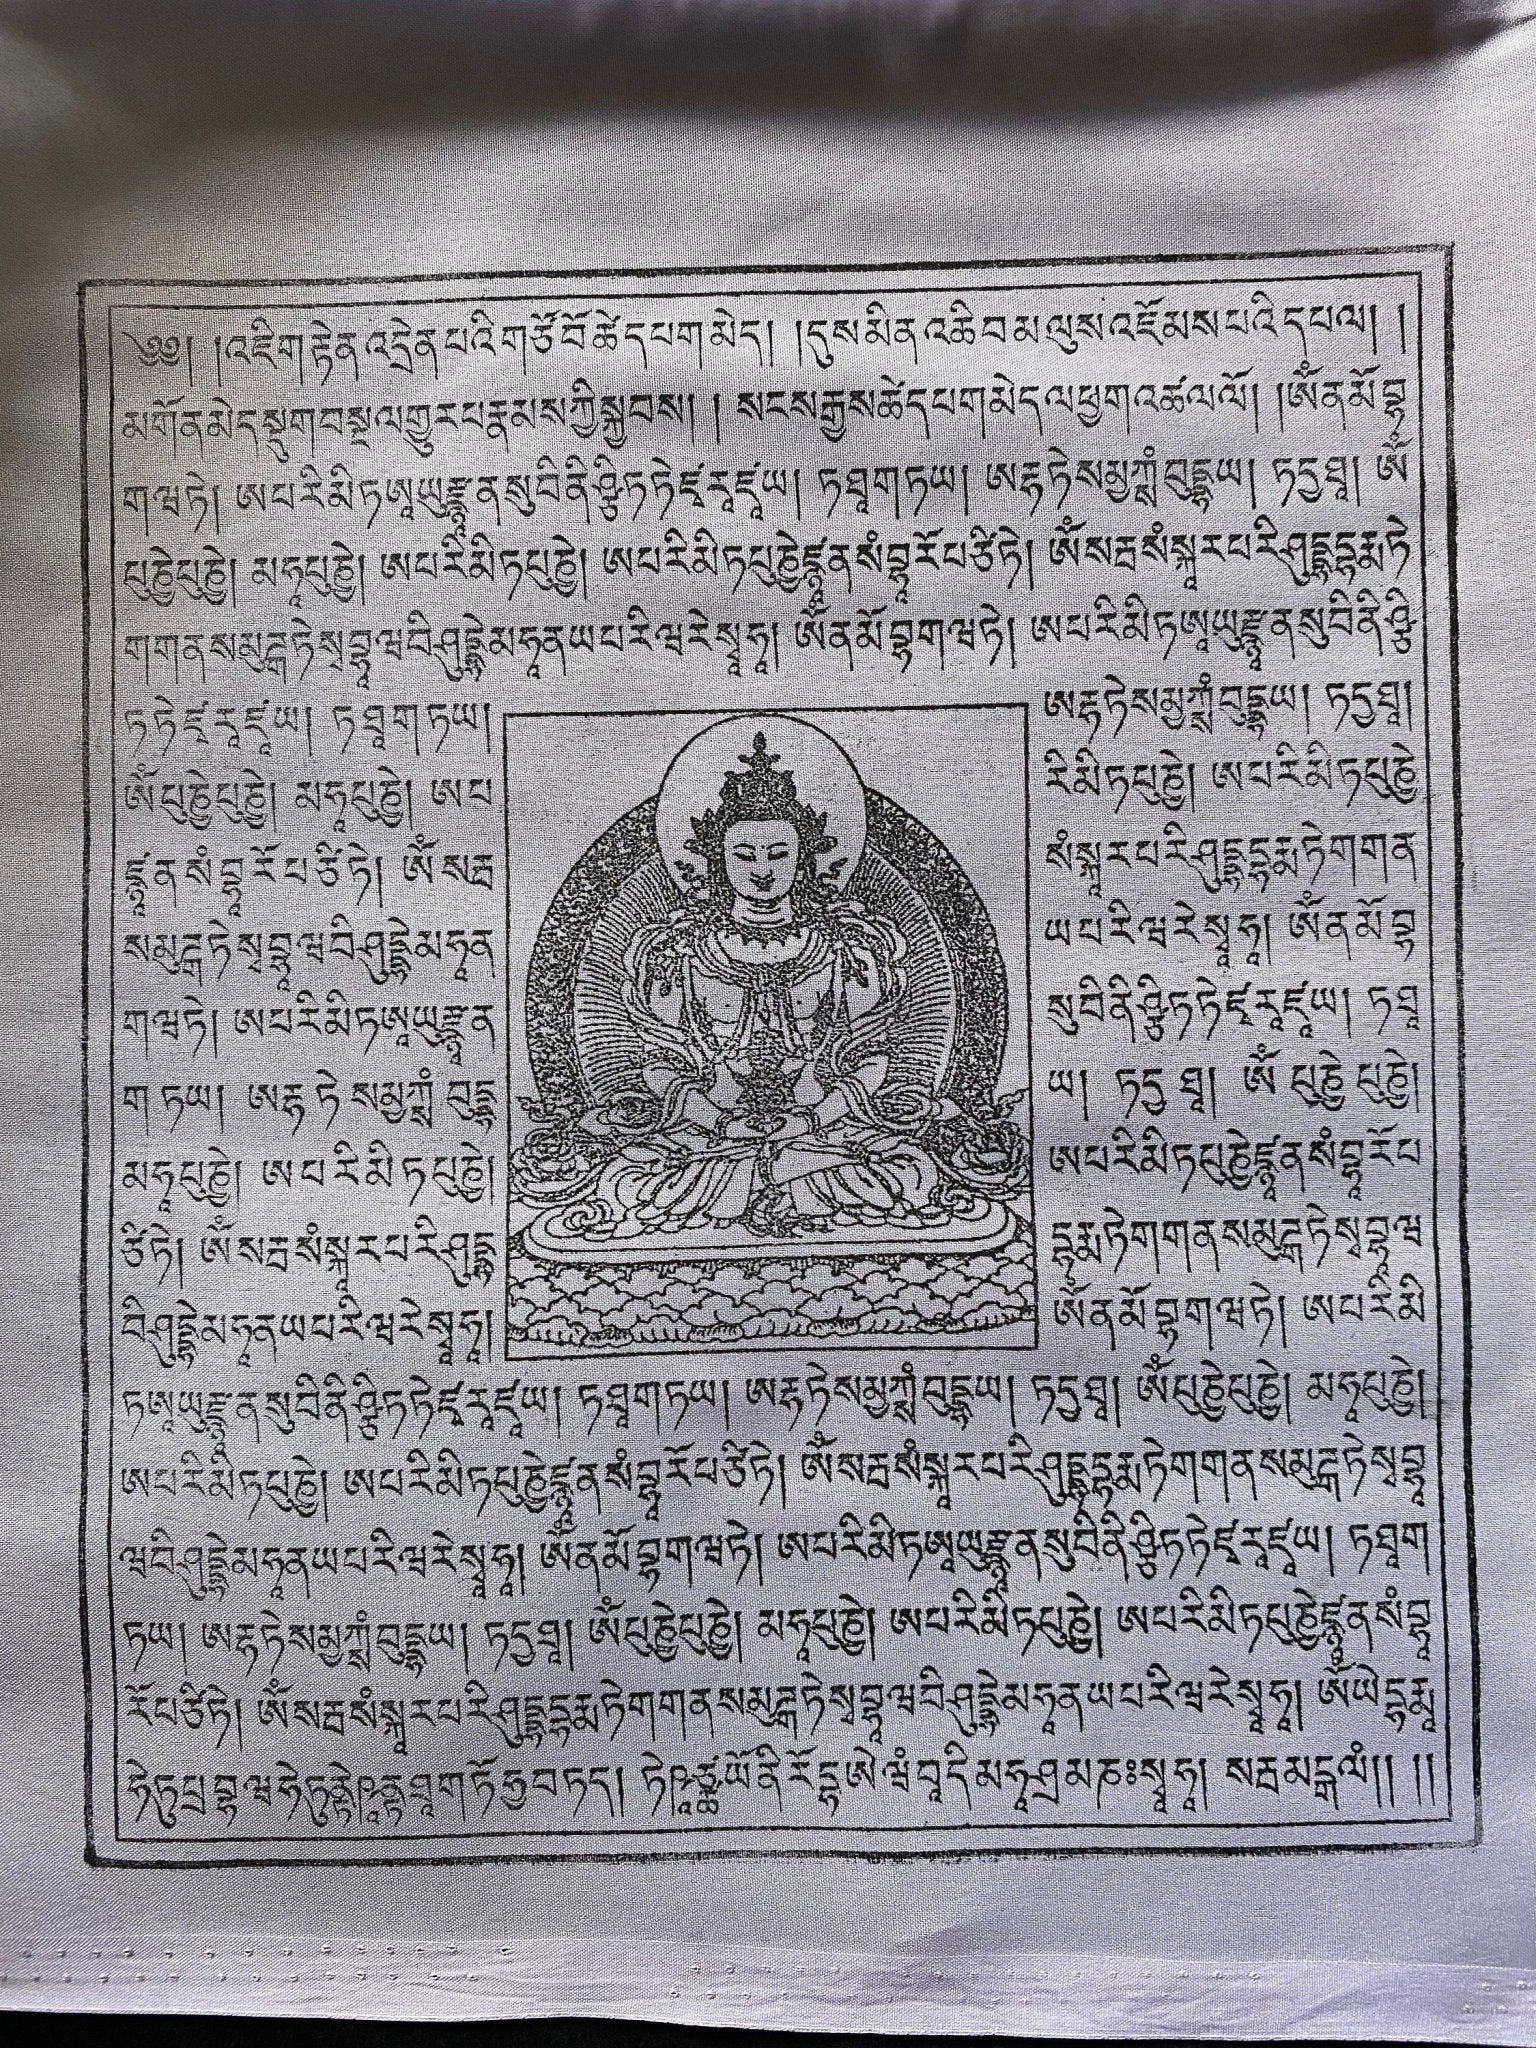 ༄༅། །འཇིག་རྟེན་འདྲེན་པའི་གཙོ་བོ་ཚེ་དཔག་མེད། །དུས་མིན་འཆི་བ་མ་ལུས་འཇོམས་པའི་དཔལ། །
མགོན་མེད་སྡུག་བསྔལ་གྱུར་པ་རྣམས་ཀྱི་སྐྱབས། །སངས་རྒྱས་ཚེ་དཔག་མེད་ལ་ཕྱག་འཚལ་ལོ། །ཨོཾ་ན་མོ་བྷ
ག་ཝ་ཏེ། ཨ་པ་རི་མི་ཏ་ཨཱ་ཡུརྫྙཱ་ན་སུ་བི་ནི་ཤྩི་ཏ་ཏེ་ཛོ་རཱ་ཛཱ་ཡ། ཏ་ཐཱ་ག་ཏ་ཡ། ཨརྷ་ཏེ་སམྱཀྶཾ་བུདྡྷ་ཡ། ཏདྱ་ཐཱ། ཨོཾ
པུཎྱེ་པུཎྱེ། མ་ཧཱ་པུཎྱེ། ཨ་པ་རི་མི་ཏ་པུཎྱེ། ཨ་པ་རི་མི་ཏ་པུཎྱེ་ཛྙཱ་ན་སཾ་བྷཱ་རོ་པ་ཙི་ཏེ། ཨོཾ་སརྦ་སཾ་སྐཱ་ར་པ་རི་ཤུདྡྷ་དྷརྨ་ཏེ
ག་ག་ན་ས་མུདྒ་ཏེ་སྭ་བྷཱ་ཝ་བི་ཤུདྡྷེ་མ་ཧཱ་ན་ཡ་པ་རི་ཝ་རེ་སྭཱ་ཧཱ། ཨོཾ་ན་མོ་བྷ་ག་ཝ་ཏེ། ཨ་པ་རི་མི་ཏ་ཨཱ་ཡུརྫྙཱ་ན་སུ་བི་ནི་ཤྩི
ཏ་ཏེ་ཛོ་རཱ་ཛཱ་ཡ། ཏ་ཐཱ་ག་ཏ་ཡ། ཨརྷ་ཏེ་སམྱཀྶཾ་བུདྡྷ་ཡ། ཏདྱ་ཐཱ།
ཨོཾ་པུཎྱེ་པུཎྱེ། མ་ཧཱ་པུཎྱེ། ཨ་པ རི་མི་ཏ་པུཎྱེ། ཨ་པ་རི་མི་ཏ་པུཎྱེ
ཛྙཱ་ན་སཾ་བྷཱ་རོ་པ་ཙི་ཏེ། ཨོཾ་སརྦ སཾ་སྐཱ་ར་པ་རི་ཤུདྡྷ་དྷརྨ་ཏེ་ག་ག་ན
ས་མུདྒ་ཏེ་སྭ་བྷཱ་ཝ་བི་ཤུདྡྷེ་མ་ཧཱ་ན ཡ་པ་རི་ཝ་རེ་སྭཱ་ཧཱ། ཨོཾ་ན་མོ་བྷ
ག་ཝ་ཏེ། ཨ་པ་རི་མི་ཏ་ཨཱ་ཡུརྫྙཱ་ན སུ་བི་ནི་ཤྩི་ཏ་ཏེ་ཛོ་རཱ་ཛཱ་ཡ། ཏ་ཐཱ
ག་ཏ་ཡ། ཨརྷ་ཏེ་སམྱཀྶཾ་བུདྡྷ ཡ། ཏདྱ་ཐཱ། ཨོཾ་པུཎྱེ་པུཎྱེ།
མ་ཧཱ་པུཎྱེ། ཨ་པ་རི་མི་ཏ་པུཎྱེ། ཨ་པ་རི་མི་ཏ་པུཎྱེ་ཛྙཱ་ན་སཾ་བྷཱ་རོ་པ
ཙི་ཏེ། ཨོཾ་སརྦ་སཾ་སྐཱ་ར་པ་རི་ཤུདྡྷ དྷརྨ་ཏེ་ག་ག་ན་ས་མུདྒ་ཏེ་སྭ་བྷཱ་ཝ
བི་ཤུདྡྷེ་མ་ཧཱ་ན་ཡ་པ་རི་ཝ་རེ་སྭཱ་ཧཱ། ཨོཾ་ན་མོ་བྷ་ག་ཝ་ཏེ། ཨ་པ་རི་མི
ཏ་ཨཱ་ཡུརྫྙཱ་ན་སུ་བི་ནི་ཤྩི་ཏ་ཏེ་ཛོ་རཱ་ཛཱ་ཡ། ཏ་ཐཱ་ག་ཏ་ཡ། ཨརྷ་ཏེ་སམྱཀྶཾ་བུདྡྷ་ཡ། ཏདྱ་ཐཱ། ཨོཾ་པུཎྱེ་པུཎྱེ། མ་ཧཱ་པུཎྱེ།
ཨ་པ་རི་མི་ཏ་པུཎྱེ། ཨ་པ་རི་མི་ཏ་པུཎྱེ་ཛྙཱ་ན་སཾ་བྷཱ་རོ་པ་ཙི་ཏེ། ཨོཾ་སརྦ་སཾ་སྐཱ་ར་པ་རི་ཤུདྡྷ་དྷརྨ་ཏེ་ག་ག་ན་ས་མུདྒ་ཏེ་སྭ་བྷཱ
ཝ་བི་ཤུདྡྷེ་མ་ཧཱ་ན་ཡ་པ་རི་ཝ་རེ་སྭཱ་ཧཱ། ཨོཾ་ན་མོ་བྷ་ག་ཝ་ཏེ། ཨ་པ་རི་མི་ཏ་ཨཱ་ཡུརྫྙཱ་ན་སུ་བི་ནི་ཤྩི་ཏ་ཏེ་ཛོ་རཱ་ཛཱ་ཡ། ཏ་ཐཱ་ག
ཏ་ཡ། ཨརྷ་ཏེ་སམྱཀྶཾ་བུདྡྷ་ཡ། ཏདྱ་ཐཱ། ཨོཾ་པུཎྱེ་པུཎྱེ། མ་ཧཱ་པུཎྱེ། ཨ་པ་རི་མི་ཏ་པུཎྱེ། ཨ་པ་རི་མི་ཏ་པུཎྱེ་ཛྙཱ་ན་སཾ་བྷཱ
རོ་པ་ཙི་ཏེ། ཨོཾ་སརྦ་སཾ་སྐཱ་ར་པ་རི་ཤུདྡྷ་དྷརྨ་ཏེ་ག་ག་ན་ས་མུདྒ་ཏེ་སྭ་བྷཱ་ཝ་བི་ཤུདྡྷེ་མ་ཧཱ་ན་ཡ་པ་རི་ཝ་རེ་སྭཱ་ཧཱ། ཨོཾ་ཡེ་དྷརྨཱ
ཧེ་ཏུ་པྲ་བྷ་ཝ་ཧེ་ཏུནྟེ་ཥཱནྟ་ཐཱ་ག་ཏོ་ཧྱ་བ་ཏད། ཏེ་ཥཱཉྩ་ཡོ་ནི་རོ་དྷ་ཨེ་ཝཾ་བཱ་དི་མ་ཧཱ་ཤྲ་མ་ཎཿསྭཱ་ཧཱ། སརྦ་མངྒ་ལཾ།། །།